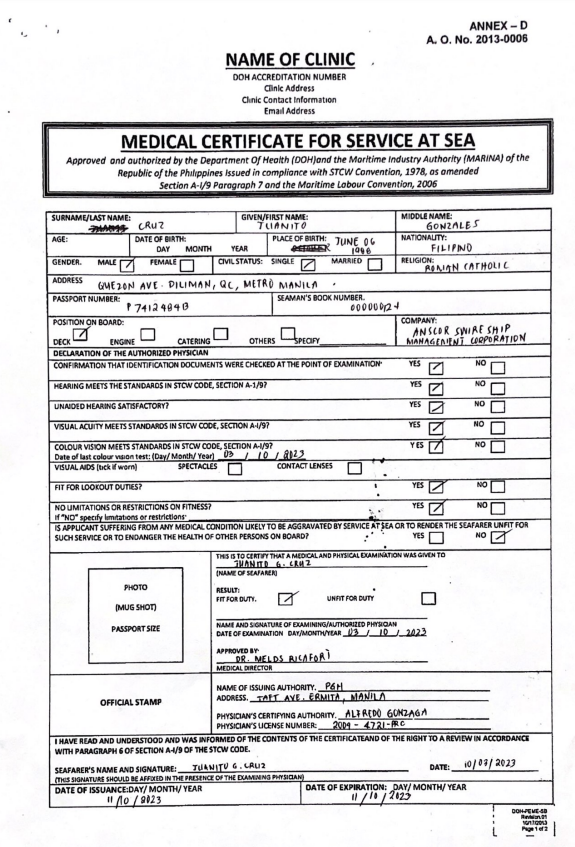 ANNEX – D
A. O. No. 2013-0006
NAME OF CLINIC
DOH ACCREDITATION NUMBER
Clinic Address
Clinic Contact Information
Email Address
MEDICAL CERTIFICATE FOR SERVICE AT SEA
Approved and authorized by the Department Of Health (DOH)and the Maritime Industry Authority (MARINA) of the
Republic of the Philippines Issued in compliance with STCW Convention, 1978, as amended
Section A-I/9 Paragraph 7 and the Maritime Labour Convention, 2006
SURNAME/LAST NAME: CRUZ GIVEN/FIRST NAME: JUANITO MIDDLE NAME: GONZALES
AGE: DATE OF BIRTH: DAY MONTH YEAR PLACE OF BIRTH: JUNE 06 NATIONALITY: FILIPINO
GENDER. MALE FEMALE CIVIL STATUS: SINGLE MARRIED RELIGION: ROMAN CATHOLIC
ADDRESS QUEZON AVE. DILIMAN, QC, METRO MANILA
PASSPORT NUMBER: P7412484B SEAMAN'S BOOK NUMBER.
POSITION ON BOARD: DECK ENGINE CATERING OTHERS SPECIFY COMPANY: ANSCOR SWIRE SHIP MANAGEMENT CORPORATION
DECLARATION OF THE AUTHORIZED PHYSICIAN
CONFIRMATION THAT IDENTIFICATION DOCUMENTS WERE CHECKED AT THE POINT OF EXAMINATION YES NO
HEARING MEETS THE STANDARDS IN STCW CODE, SECTION A-1/9? YES NO
UNAIDED HEARING SATISFACTORY? YES NO
VISUAL ACUITY MEETS STANDARDS IN STCW CODE, SECTION A-I/9? YES NO
COLOUR VISION MEETS STANDARDS IN STCW CODE, SECTION A-I/9? YES NO
Date of last colour vision test: (Day/ Month/ Year) 03 / 10 / 2023
VISUAL AIDS (tick if worn) SPECTACLES CONTACT LENSES
FIT FOR LOOKOUT DUTIES? YES NO
NO LIMITATIONS OR RESTRICTIONS ON FITNESS? YES NO
If "NO" specify limitations or restrictions
IS APPLICANT SUFFERING FROM ANY MEDICAL CONDITION LIKELY TO BE AGGRAVATED BY SERVICE AT SEA OR TO RENDER THE SEAFARER UNFIT FOR
SUCH SERVICE OR TO ENDANGER THE HEALTH OF OTHER PERSONS ON BOARD? YES NO
THIS IS TO CERTIFY THAT A MEDICAL AND PHYSICAL EXAMINATION WAS GIVEN TO
JUANITO G. CRUZ
(NAME OF SEAFARER)
PHOTO
(MUG SHOT)
PASSPORT SIZE
RESULT:
FIT FOR DUTY. UNFIT FOR DUTY
NAME AND SIGNATURE OF EXAMINING/AUTHORIZED PHYSICIAN
DATE OF EXAMINATION DAY/MONTH/YEAR 03 / 10 / 2023
APPROVED BY
DR. MELDS RICAFORT
MEDICAL DIRECTOR
OFFICIAL STAMP
NAME OF ISSUING AUTHORITY. PGH
ADDRESS. TAFT AVE. ERMITA, MANILA
PHYSICIAN'S CERTIFYING AUTHORITY. ALFREDO GONZAGA
PHYSICIAN'S LICENSE NUMBER: 2009 - 4721-PRC
I HAVE READ AND UNDERSTOOD AND WAS INFORMED OF THE CONTENTS OF THE CERTIFICATEAND OF THE RIGHT TO A REVIEW IN ACCORDANCE
WITH PARAGRAPH 6 OF SECTION A-I/9 OF THE STCW CODE.
SEAFARER'S NAME AND SIGNATURE: JUANITO G. CRUZ DATE: 10/03/2023
(THIS SIGNATURE SHOULD BE AFFIXED IN THE PRESENCE OF THE EXAMINING PHYSICIAN)
DATE OF ISSUANCE:DAY/ MONTH/ YEAR DATE OF EXPIRATION: DAY/ MONTH/ YEAR
11 /10 / 2023 11 / 10 / 2023
DOH-PEME-SB
Revision:01
10/17/2013
Page 1 of 2